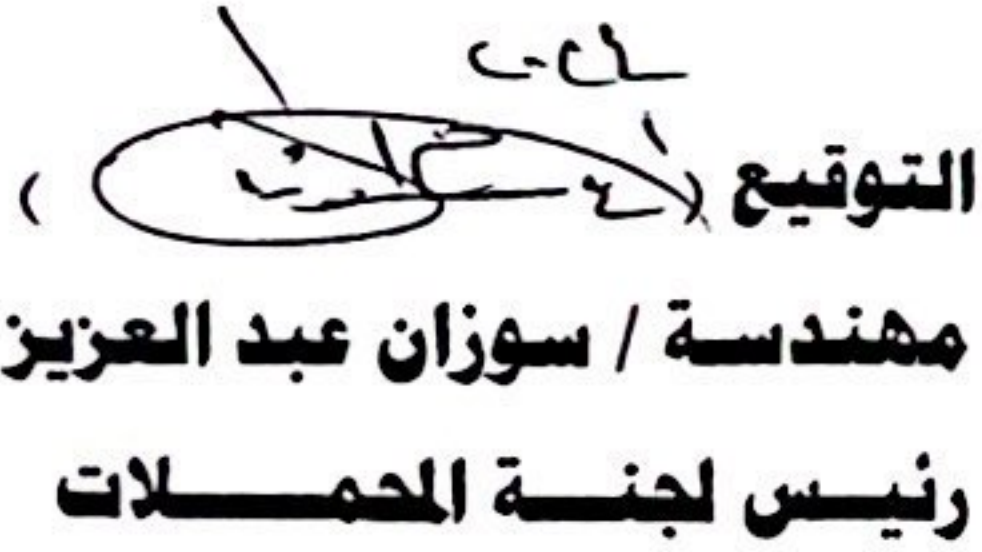 التوقيع ( )
مهندسة / سوزان عبد العزيز
رئيس لجنة المحملات